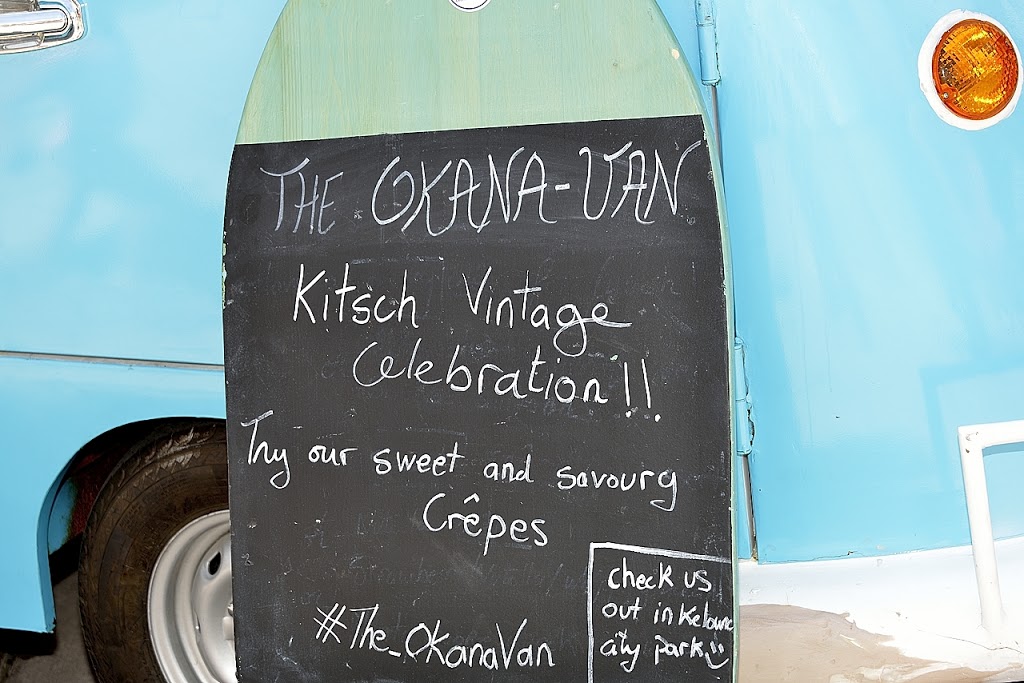 THE OKANA-VAN
Kitsch Vintage
Celebration!!
Try our sweet and savoury
Crêpes
#The_OkanaVan
check us
out in Kelowna
city park